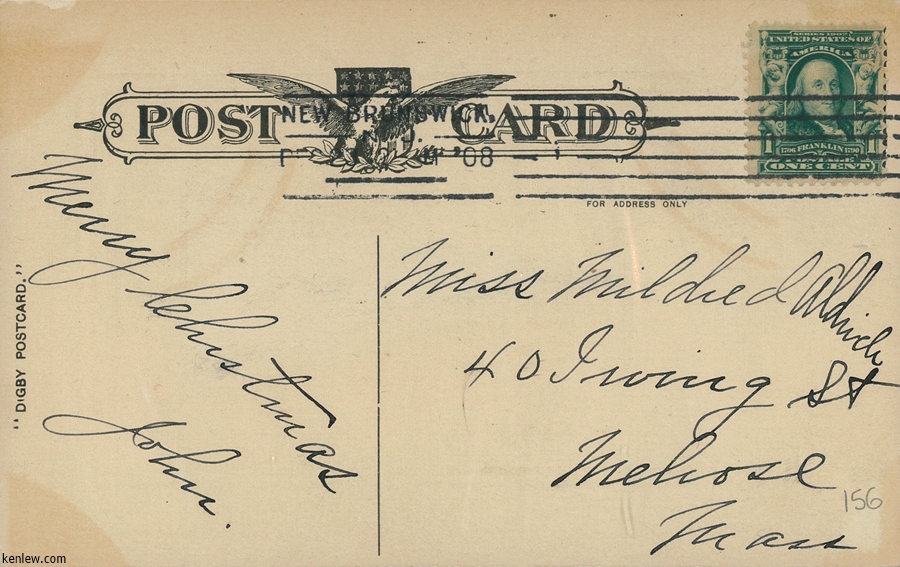 POST CARD
NEW BRUNSWICK,
'08
SERIES 1902
UNITED STATES OF
AMERICA
1 1706 FRANKLIN 1790 1
ONE CENT
FOR ADDRESS ONLY
Merry Christmas
John.
"DIGBY POSTCARD."
Miss Mildred Aldrich
40 Irving St
Melrose
Mass
156
kenlew.com